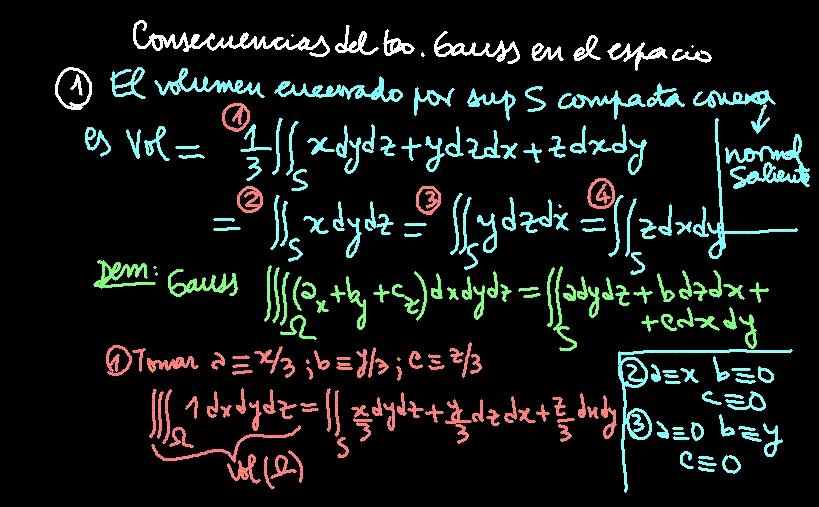 Consecuencias del teo. Gauss en el espacio
① El volumen encerrado por sup S compacta conexa
normal
saliente
es Vol = ① 1/3 ∬_S x dy dz + y dz dx + z dx dy
= ② ∬_S x dy dz = ③ ∬_S y dz dx = ④ ∬_S z dx dy
Dem: Gauss ∭_Ω (a_x + b_y + c_z) dx dy dz = ∬_S a dy dz + b dz dx +
+ c dx dy
① Tomar a ≡ x/3 ; b ≡ y/3 ; c ≡ z/3
∭_Ω 1 dx dy dz = ∬_S x/3 dy dz + y/3 dz dx + z/3 dx dy
Vol(Ω)
② a ≡ x b ≡ 0
c ≡ 0
③ a ≡ 0 b ≡ y
c ≡ 0